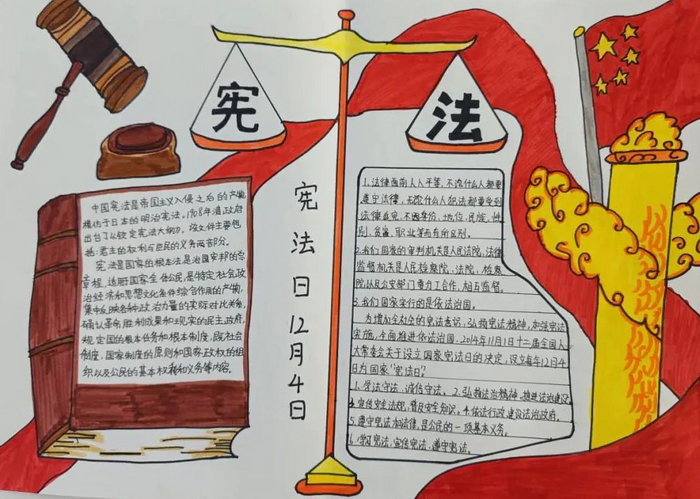 宪
法
宪法日12月4日
中国宪法是帝国主义入侵之后的产物
模仿于日本的明治宪法,1908年清政府
出台了《钦定宪法大纲》,该文件主要包
括:君主的权利与臣民的义务两部分。
宪法是国家的根本法是治国安邦的总
章程,适用国家全体公民,是特定社会政
治经济和思想文化条件综合作用的产物,
集中反映各种政治力量的实际对比关系,
确认革命胜利成果和现实的民主政府,
规定国的根本任务和根本制度,既社会
制度、国家制度的原则和国家政权的组
织以及公民的基本权利和义务等内容。
1.法律面前人人平等,不论什么人都要
遵守法律,无论什么人犯法都要受到
法律追究,不因身份、地位、民族、性
别、贫富、职业等有所区别。
2.我们国家的审判机关是人民法院,法律
监督机关是人民检察院,法院、检察
院以及公安部门要分工合作,相互监督。
3.我们国家实行的是依法治国。
为增加全社会的宪法意识,弘扬宪法精神,加强宪法
实施,全面推进依法治国,2014年11月1日十二届全国人
大常委会关于设立国家宪法日的决定,设立每年12月4
日为国家"宪法日"。
1.学法守法、诚信守法。2.弘扬法治精神,推进法治建设
3.宣传宪法法规,普及安全知识。4.依法行政建设法治政府。
5.遵守宪法和法律,是公民的一项基本义务。
6.学习宪法、宣传宪法、遵守宪法。